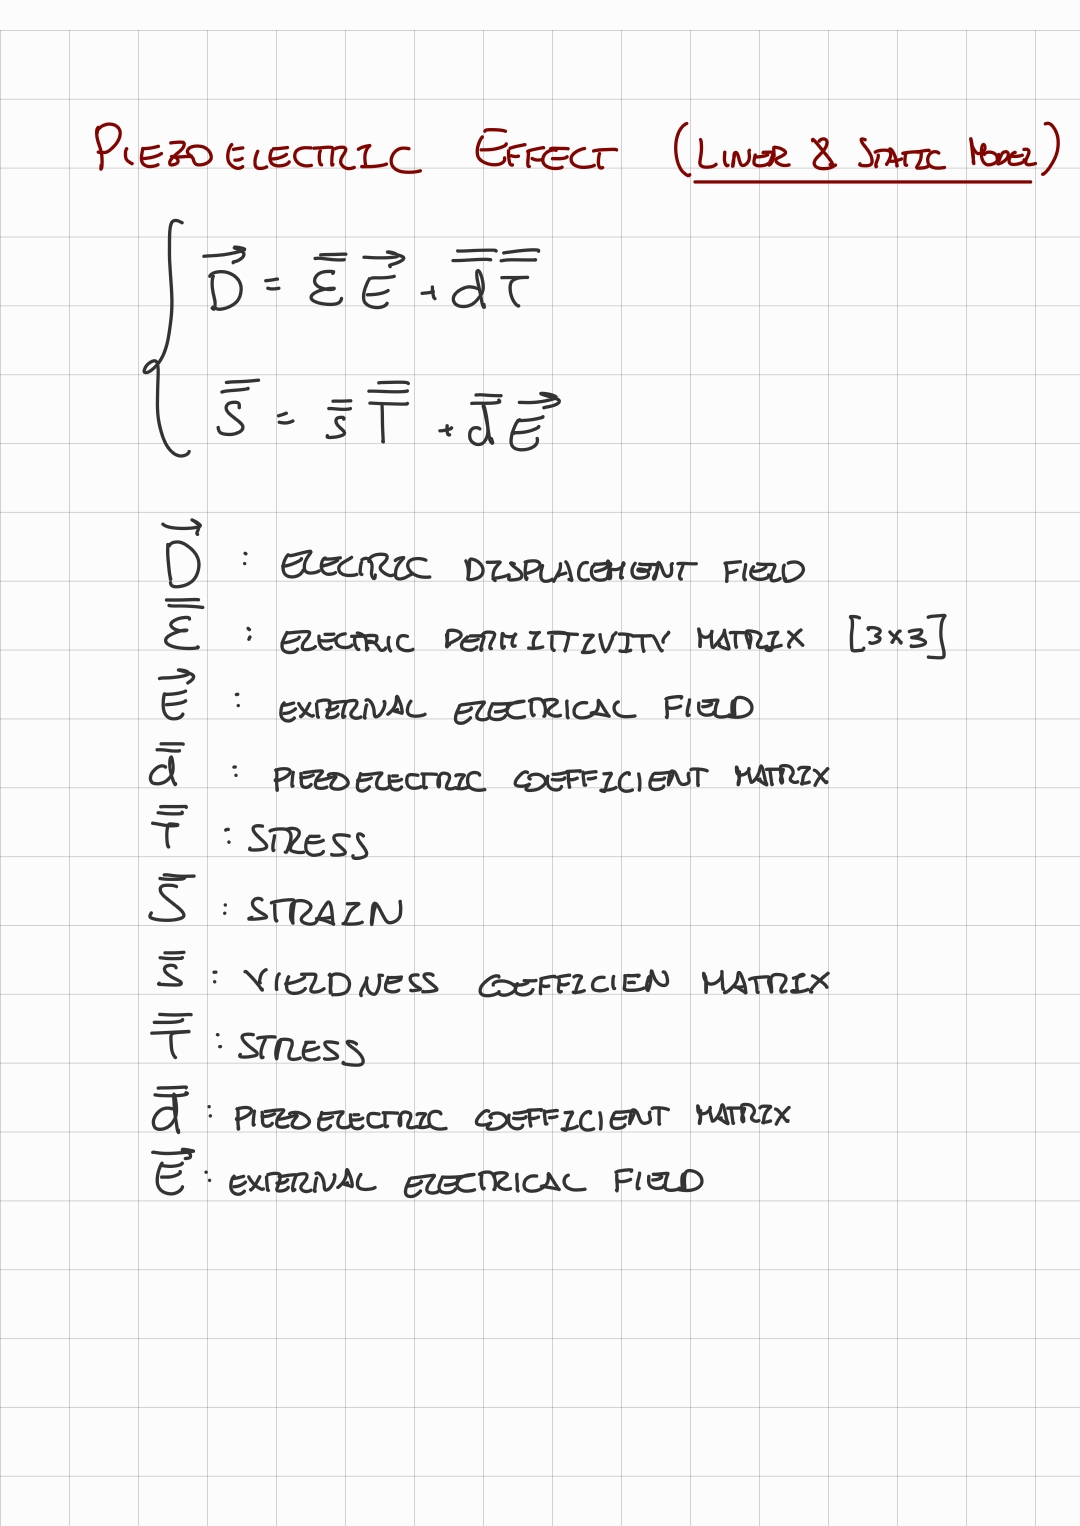 PIEZOELECTRIC EFFECT (LINER & STATIC MODEL)
D⃗ = ε̿ E⃗ + d̿ T̿
S̿ = s̿ T̿ + d̿ E⃗
D⃗ : ELECTRIC DISPLACEMENT FIELD
ε̿ : ELECTRIC PERMITTIVITY MATRIX [3x3]
E⃗ : EXTERNAL ELECTRICAL FIELD
d̿ : PIEZOELECTRIC COEFFICIENT MATRIX
T̿ : STRESS
S̿ : STRAIN
s̿ : YIELDNESS COEFFICIEN MATRIX
T̿ : STRESS
d̿ : PIEZOELECTRIC COEFFICIENT MATRIX
E⃗ : EXTERNAL ELECTRICAL FIELD